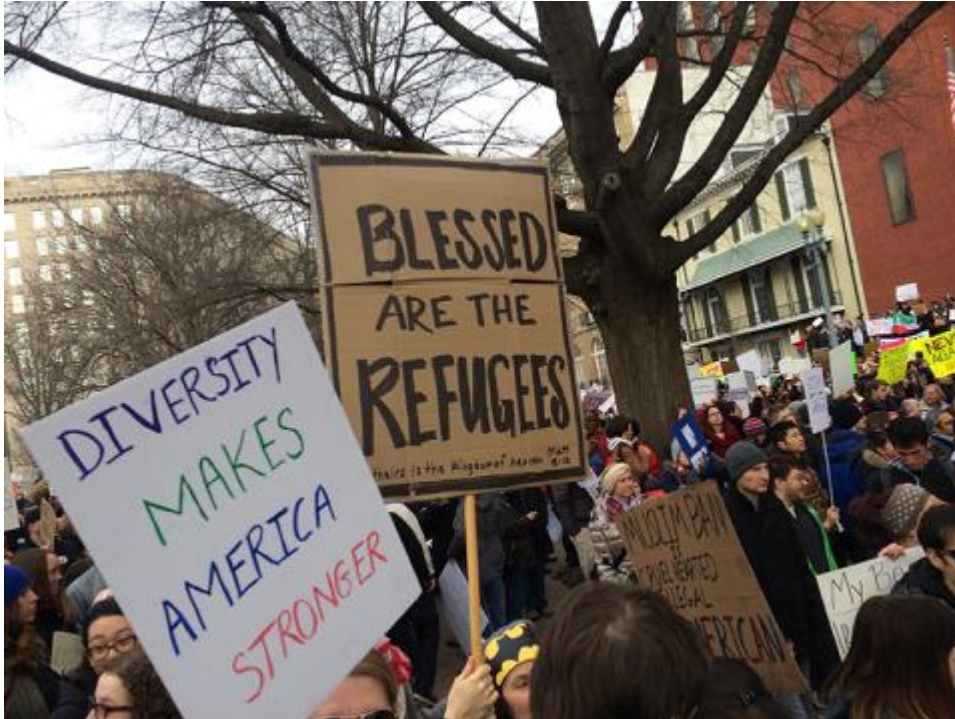 DIVERSITY
MAKES
AMERICA
STRONGER
BLESSED
ARE THE
REFUGEES
theirs is the kingdom of heaven
MUSLIM BAN
IS
CRUEL HEARTED
ILLEGAL
AMERICAN
My
NEVER
AGAIN